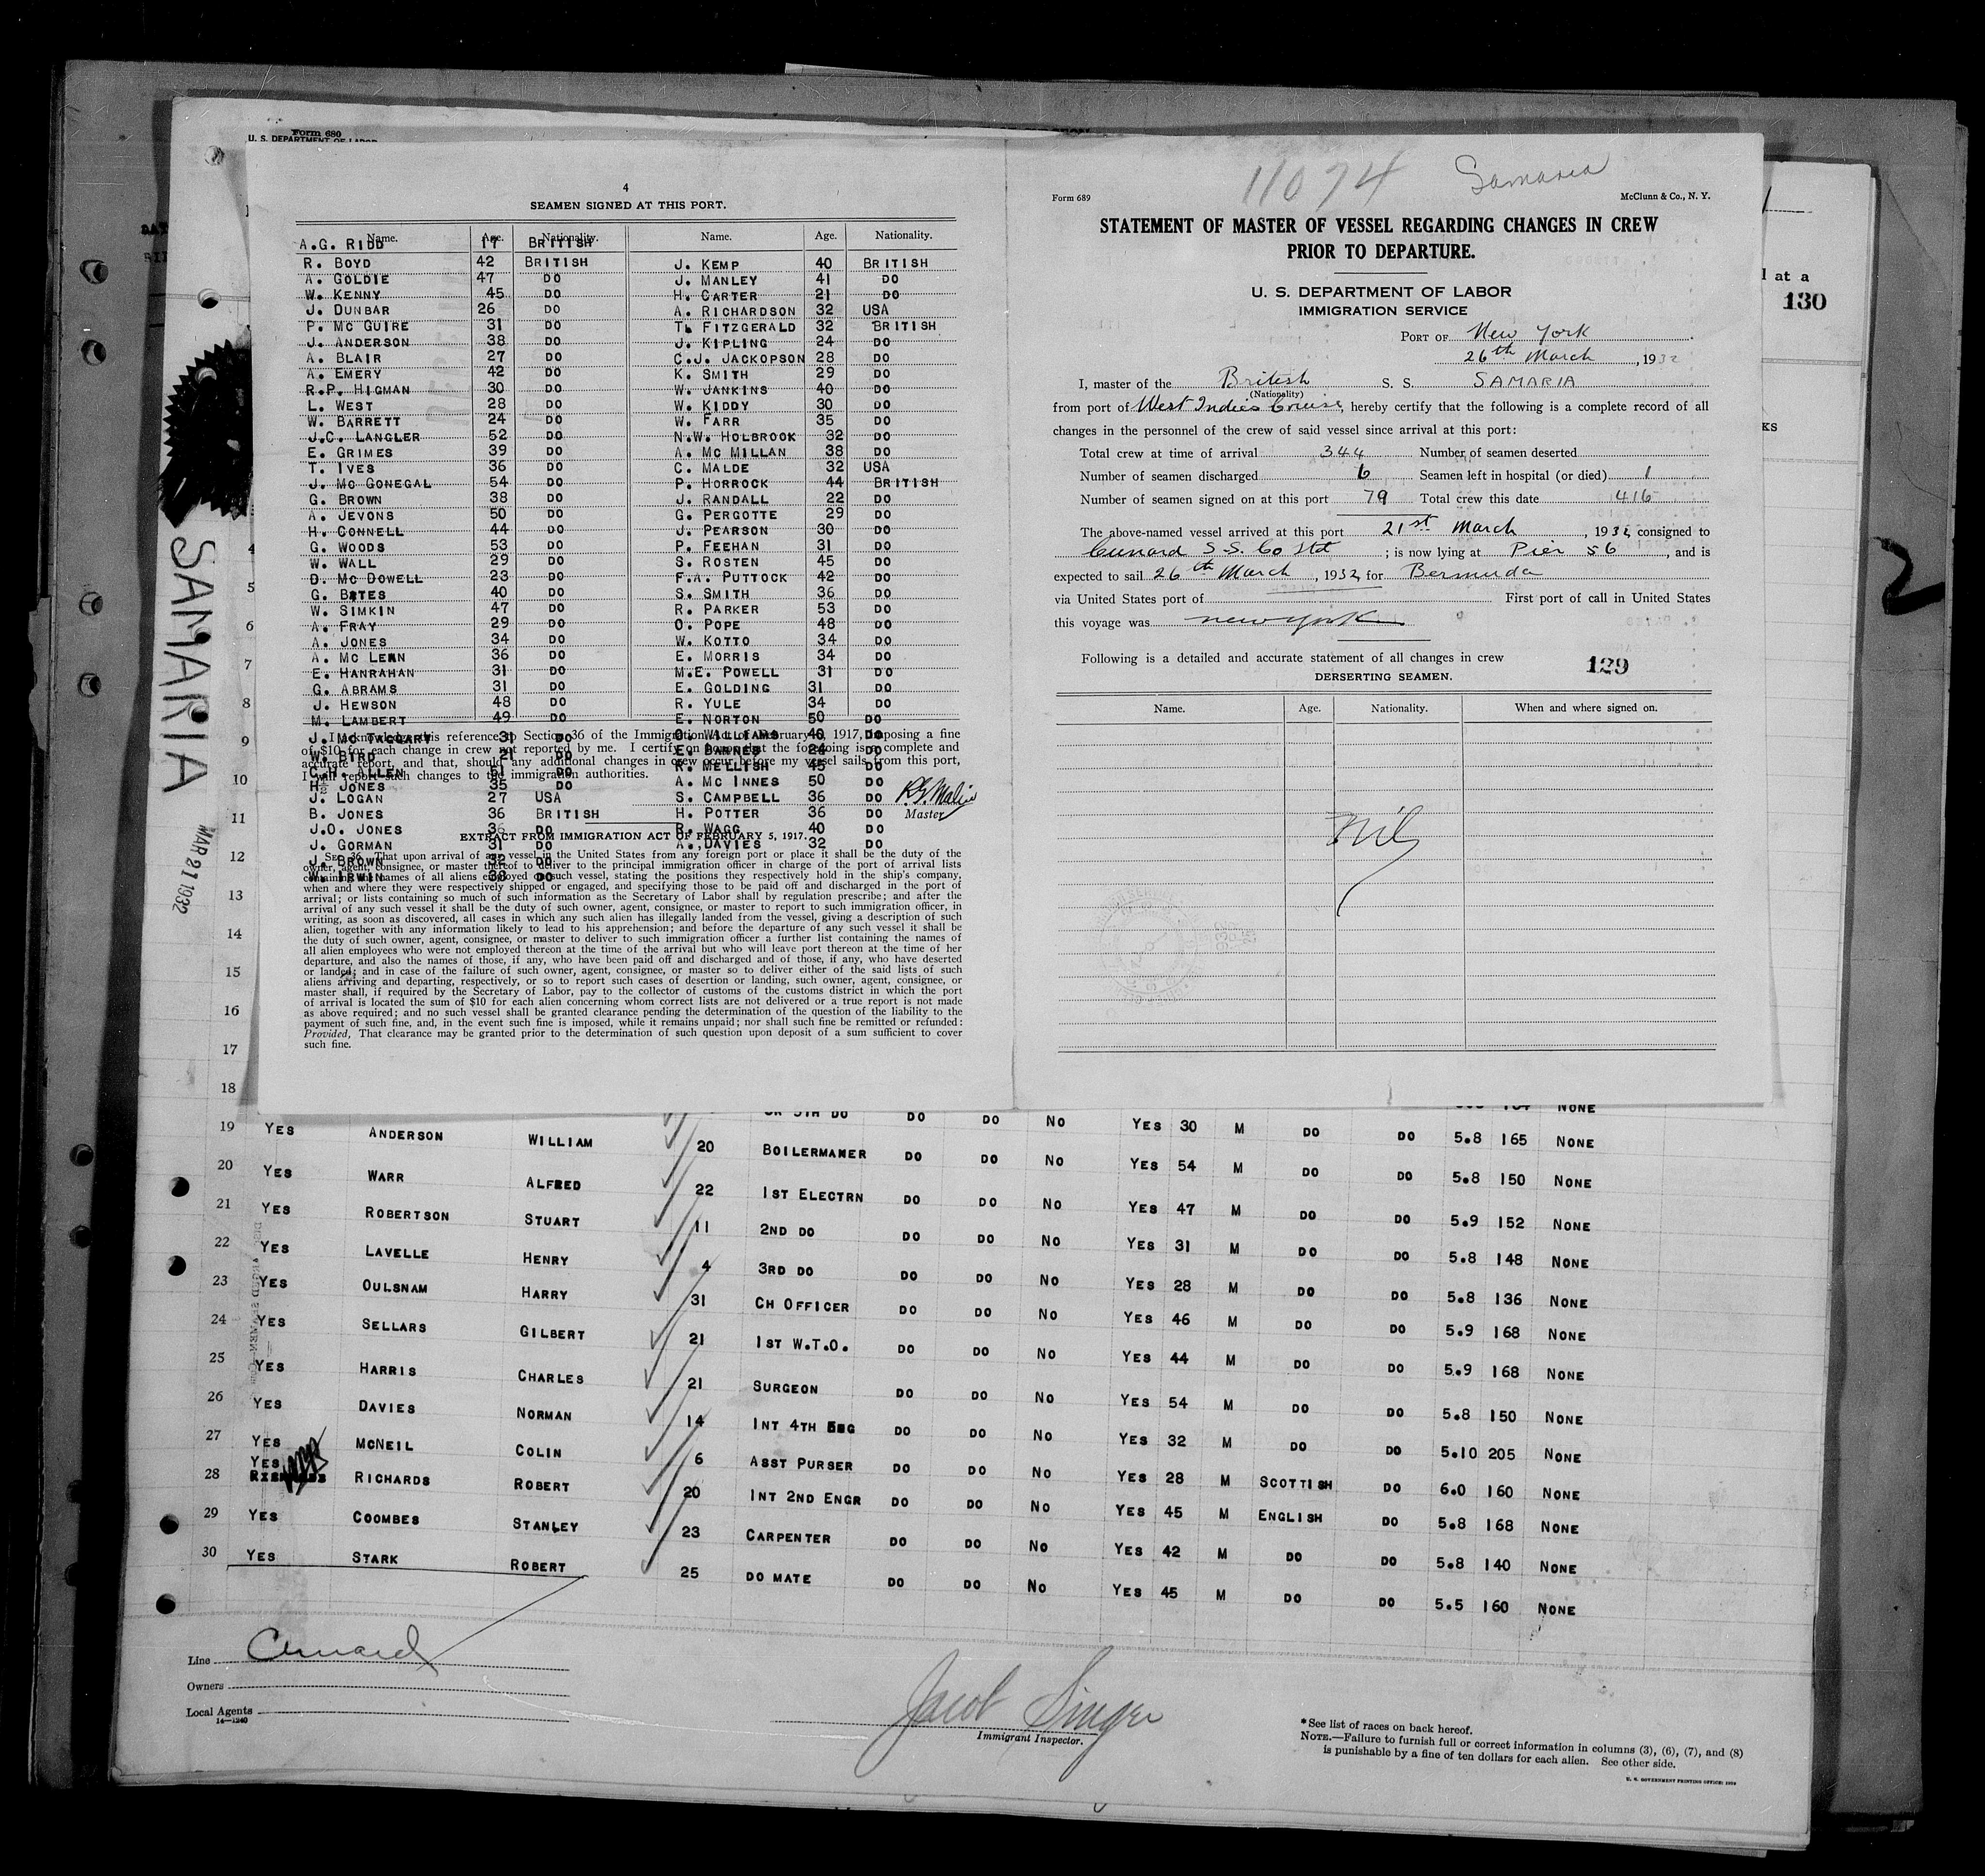 Form 680
U. S. DEPARTMENT OF LABOR
4
SEAMEN SIGNED AT THIS PORT.
Name. Age. Nationality. Name. Age. Nationality.
A.G. RIDD 17 BRITISH
R. BOYD 42 BRITISH J. KEMP 40 BRITISH
A. GOLDIE 47 DO J. MANLEY 41 DO
W. KENNY 45 DO H. CARTER 21 DO
J. DUNBAR 26 DO A. RICHARDSON 32 USA
P. MC GUIRE 31 DO T. FITZGERALD 32 BRITISH
J. ANDERSON 38 DO J. KIPLING 24 DO
A. BLAIR 27 DO C.J. JACKOPSON 28 DO
A. EMERY 42 DO K. SMITH 29 DO
R.P. HIGMAN 30 DO W. JANKINS 40 DO
L. WEST 28 DO W. KIDDY 30 DO
W. BARRETT 24 DO W. FARR 35 DO
J.C. LANGLER 52 DO N.W. HOLBROOK 32 DO
E. GRIMES 39 DO A. MC MILLAN 38 DO
T. IVES 36 DO C. MALDE 32 USA
J. MC GONEGAL 54 DO P. HORROCK 44 BRITISH
G. BROWN 38 DO J. RANDALL 22 DO
A. JEVONS 50 DO G. PERGOTTE 29 DO
H. CONNELL 44 DO J. PEARSON 30 DO
G. WOODS 53 DO P. FEEHAN 31 DO
W. WALL 29 DO S. ROSTEN 45 DO
D. MC DOWELL 23 DO F.A. PUTTOCK 42 DO
G. BATES 40 DO S. SMITH 36 DO
W. SIMKIN 47 DO R. PARKER 53 DO
A. FRAY 29 DO O. POPE 48 DO
A. JONES 34 DO W. KOTTO 34 DO
A. MC LEAN 36 DO E. MORRIS 34 DO
E. HANRAHAN 31 DO M.E. POWELL 31 DO
G. ABRAMS 31 DO E. GOLDING 31 DO
J. HEWSON 48 DO R. YULE 34 DO
M. LAMBERT 49 DO E. NORTON 50 DO
J. MC TAGGART 31 DO O. WILLIAMS 40 DO
W. BIRD 21 DO E. BARNES 24 DO
C.H. ALLEN 51 DO R. MELLISH 45 DO
H. JONES 35 DO A. MC INNES 50 DO
J. LOGAN 27 USA S. CAMPBELL 36 DO
B. JONES 36 BRITISH H. POTTER 36 DO
J.O. JONES 36 DO R. WAGG 40 DO
J. GORMAN 31 DO A. DAVIES 32 DO
J. BROWN 32 DO
W. IRWIN 38 DO
I acknowledge this reference to Section 36 of the Immigration Act of February 5, 1917, imposing a fine
of $10 for each change in crew not reported by me. I certify on honor that the foregoing is a complete and
accurate report, and that, should any additional changes in crew occur before my vessel sails from this port,
I will report such changes to the immigration authorities.
Master
EXTRACT FROM IMMIGRATION ACT OF FEBRUARY 5, 1917.
SEC. 36. That upon arrival of any vessel in the United States from any foreign port or place it shall be the duty of the
owner, agent, consignee, or master thereof to deliver to the principal immigration officer in charge of the port of arrival lists
containing the names of all aliens employed on such vessel, stating the positions they respectively hold in the ship's company,
when and where they were respectively shipped or engaged, and specifying those to be paid off and discharged in the port of
arrival; or lists containing so much of such information as the Secretary of Labor shall by regulation prescribe; and after the
arrival of any such vessel it shall be the duty of such owner, agent, consignee, or master to report to such immigration officer, in
writing, as soon as discovered, all cases in which any such alien has illegally landed from the vessel, giving a description of such
alien, together with any information likely to lead to his apprehension; and before the departure of any such vessel it shall be
the duty of such owner, agent, consignee, or master to deliver to such immigration officer a further list containing the names of
all alien employees who were not employed thereon at the time of the arrival but who will leave port thereon at the time of her
departure, and also the names of those, if any, who have been paid off and discharged and of those, if any, who have deserted
or landed; and in case of the failure of such owner, agent, consignee, or master so to deliver either of the said lists of such
aliens arriving and departing, respectively, or so to report such cases of desertion or landing, such owner, agent, consignee, or
master shall, if required by the Secretary of Labor, pay to the collector of customs of the customs district in which the port
of arrival is located the sum of $10 for each alien concerning whom correct lists are not delivered or a true report is not made
as above required; and no such vessel shall be granted clearance pending the determination of the question of the liability to the
payment of such fine, and, in the event such fine is imposed, while it remains unpaid; nor shall such fine be remitted or refunded:
Provided, That clearance may be granted prior to the determination of such question upon deposit of a sum sufficient to cover
such fine.
11074 Samaria
Form 689 McClunn & Co., N. Y.
STATEMENT OF MASTER OF VESSEL REGARDING CHANGES IN CREW
PRIOR TO DEPARTURE.
U. S. DEPARTMENT OF LABOR
IMMIGRATION SERVICE
PORT OF New York
26th March, 1932
I, master of the British S. S. SAMARIA
(Nationality)
from port of West Indies Cruise, hereby certify that the following is a complete record of all
changes in the personnel of the crew of said vessel since arrival at this port:
Total crew at time of arrival 344 Number of seamen deserted
Number of seamen discharged 6 Seamen left in hospital (or died) 1
Number of seamen signed on at this port 79 Total crew this date 416
The above-named vessel arrived at this port 21st March, 1932, consigned to
Cunard S.S. Co Ltd; is now lying at Pier 56, and is
expected to sail 26th March, 1932 for Bermuda
via United States port of First port of call in United States
this voyage was new york
Following is a detailed and accurate statement of all changes in crew
129
DERSERTING SEAMEN.
Name. Age. Nationality. When and where signed on.
Nil
l at a
130
KS
2
SAMARIA
MAR 21 1932
4
5
6
7
8
9
10
11
12
13
14
15
16
17
18
5TH DO DO DO NO NONE
19 YES ANDERSON WILLIAM 20 BOILERMAKER DO DO NO YES 30 M DO DO 5.8 165 NONE
20 YES WARR ALFRED 22 1ST ELECTRN DO DO NO YES 54 M DO DO 5.8 150 NONE
21 YES ROBERTSON STUART 11 2ND DO DO DO NO YES 47 M DO DO 5.9 152 NONE
22 YES LAVELLE HENRY 4 3RD DO DO DO NO YES 31 M DO DO 5.8 148 NONE
23 YES OULSNAM HARRY 31 CH OFFICER DO DO NO YES 28 M DO DO 5.8 136 NONE
24 YES SELLARS GILBERT 21 1ST W.T.O. DO DO NO YES 46 M DO DO 5.9 168 NONE
25 YES HARRIS CHARLES 21 SURGEON DO DO NO YES 44 M DO DO 5.9 168 NONE
26 YES DAVIES NORMAN 14 INT 4TH ENG DO DO NO YES 54 M DO DO 5.8 150 NONE
27 YES MCNEIL COLIN 6 ASST PURSER DO DO NO YES 32 M DO DO 5.10 205 NONE
28 YES RICHARDS ROBERT 20 INT 2ND ENGR DO DO NO YES 28 M SCOTTISH DO 6.0 160 NONE
29 YES COOMBES STANLEY 23 CARPENTER DO DO NO YES 45 M ENGLISH DO 5.8 168 NONE
30 YES STARK ROBERT 25 DO MATE DO DO NO YES 42 M DO DO 5.8 140 NONE
YES 45 M DO DO 5.5 160 NONE
Line Cunard
Owners
Local Agents
14—1240
Jacob Singer
Immigrant Inspector.
*See list of races on back hereof.
NOTE.—Failure to furnish full or correct information in columns (3), (6), (7), and (8)
is punishable by a fine of ten dollars for each alien. See other side.
U. S. GOVERNMENT PRINTING OFFICE: